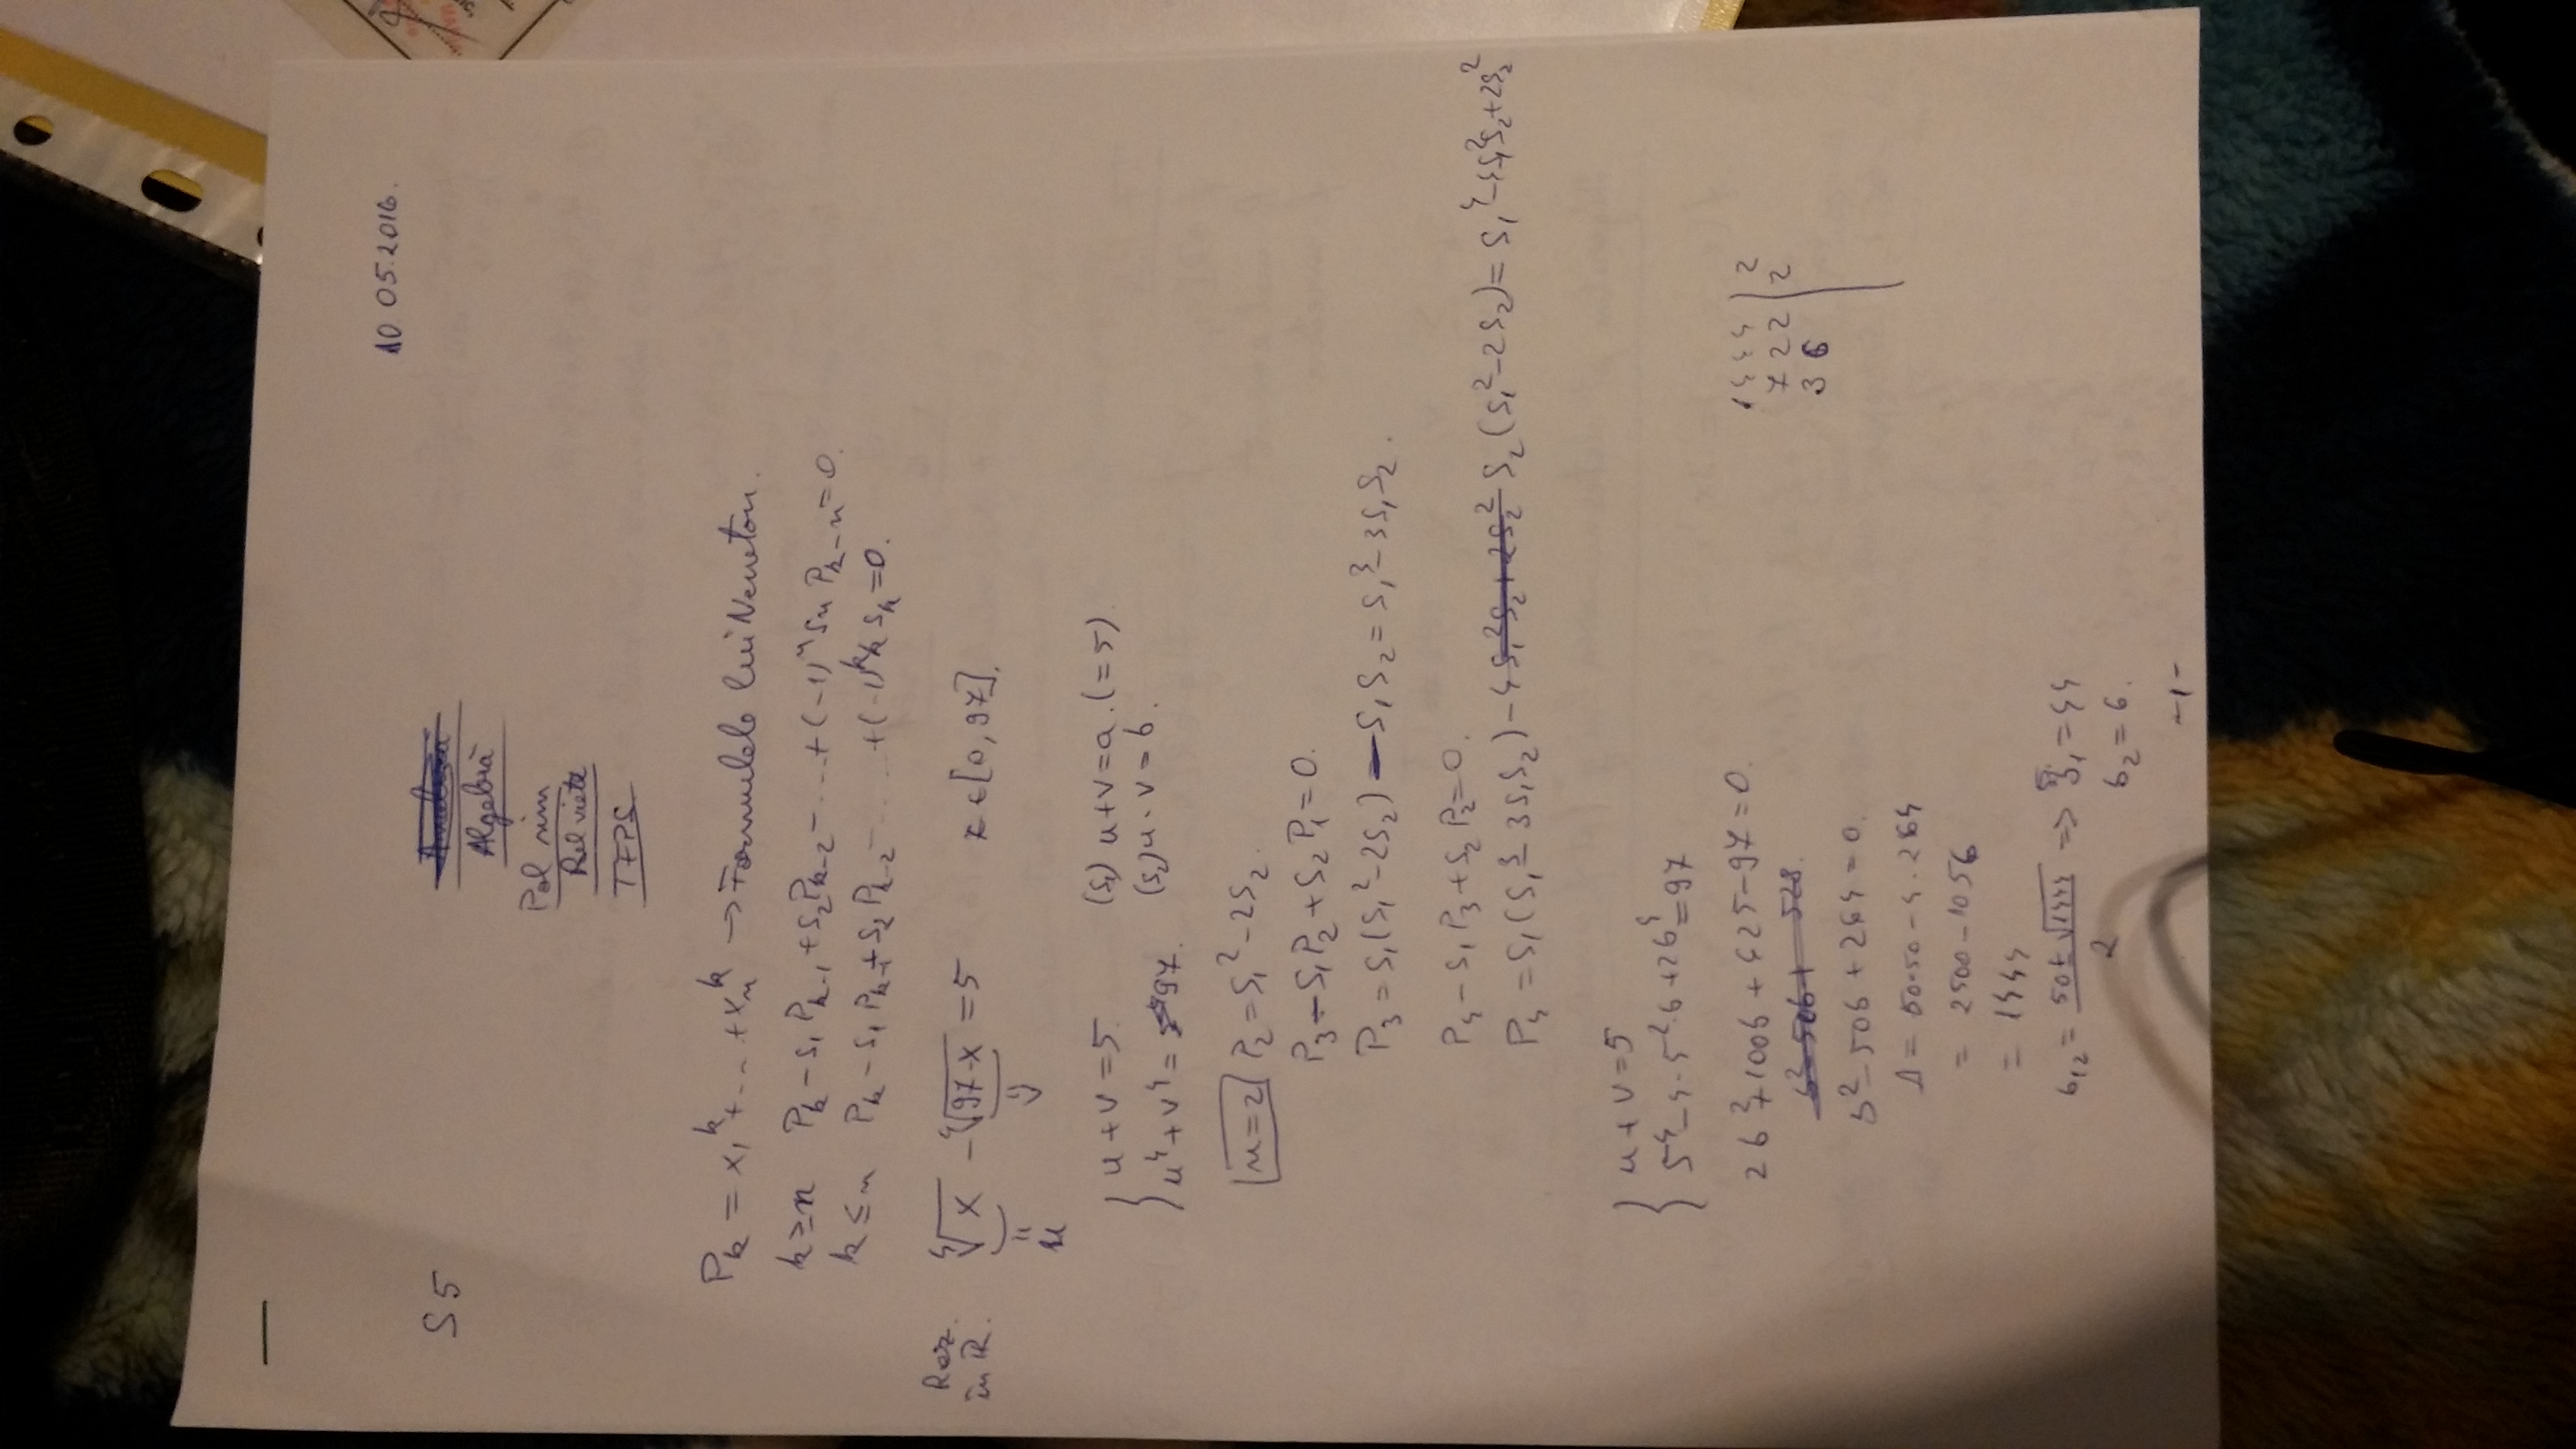 10 05.2016.
S5
Algebră
Pol sim
Rel viete
TFPS
P_k = x_1^k + ... + x_n^k → Formulele lui Newton.
k ≥ n P_k - S_1 P_{k-1} + S_2 P_{k-2} - ... + (-1)^n S_n P_{k-n} = 0.
k ≤ n P_k - S_1 P_{k-1} + S_2 P_{k-2} - ... + (-1)^k k S_k = 0.
Rez. în R. ∜x - ∜(97-x) = 5 x ∈ [0, 97].
= u v
{ u + v = 5. (S_1) u + v = a. (= 5)
u^4 + v^4 = 97. (S_2) u · v = b.
n = 2 P_2 = S_1^2 - 2S_2.
P_3 - S_1 P_2 + S_2 P_1 = 0.
P_3 = S_1(S_1^2 - 2S_2) - S_1 S_2 = S_1^3 - 3S_1 S_2.
P_4 - S_1 P_3 + S_2 P_2 = 0.
P_4 = S_1(S_1^3 - 3S_1 S_2) - 4S_1^2 S_2 + 2S_2^2 S_2(S_1^2 - 2S_2) = S_1^4 - 4S_1^2 S_2 + 2S_2^2
{ u + v = 5
5^4 - 4·5^2·b + 2b^4 = 97
2b^2 + 100b + 425 - 97 = 0.
b^2 - 50b + 528.
b^2 - 50b + 264 = 0.
Δ = 50·50 - 4·264
= 2500 - 1056
= 1444
b_{12} = (50 ± √1444)/2 ⇒ b_1 = 44
b_2 = 6.
1444 | 2
722 | 2
36
-1-